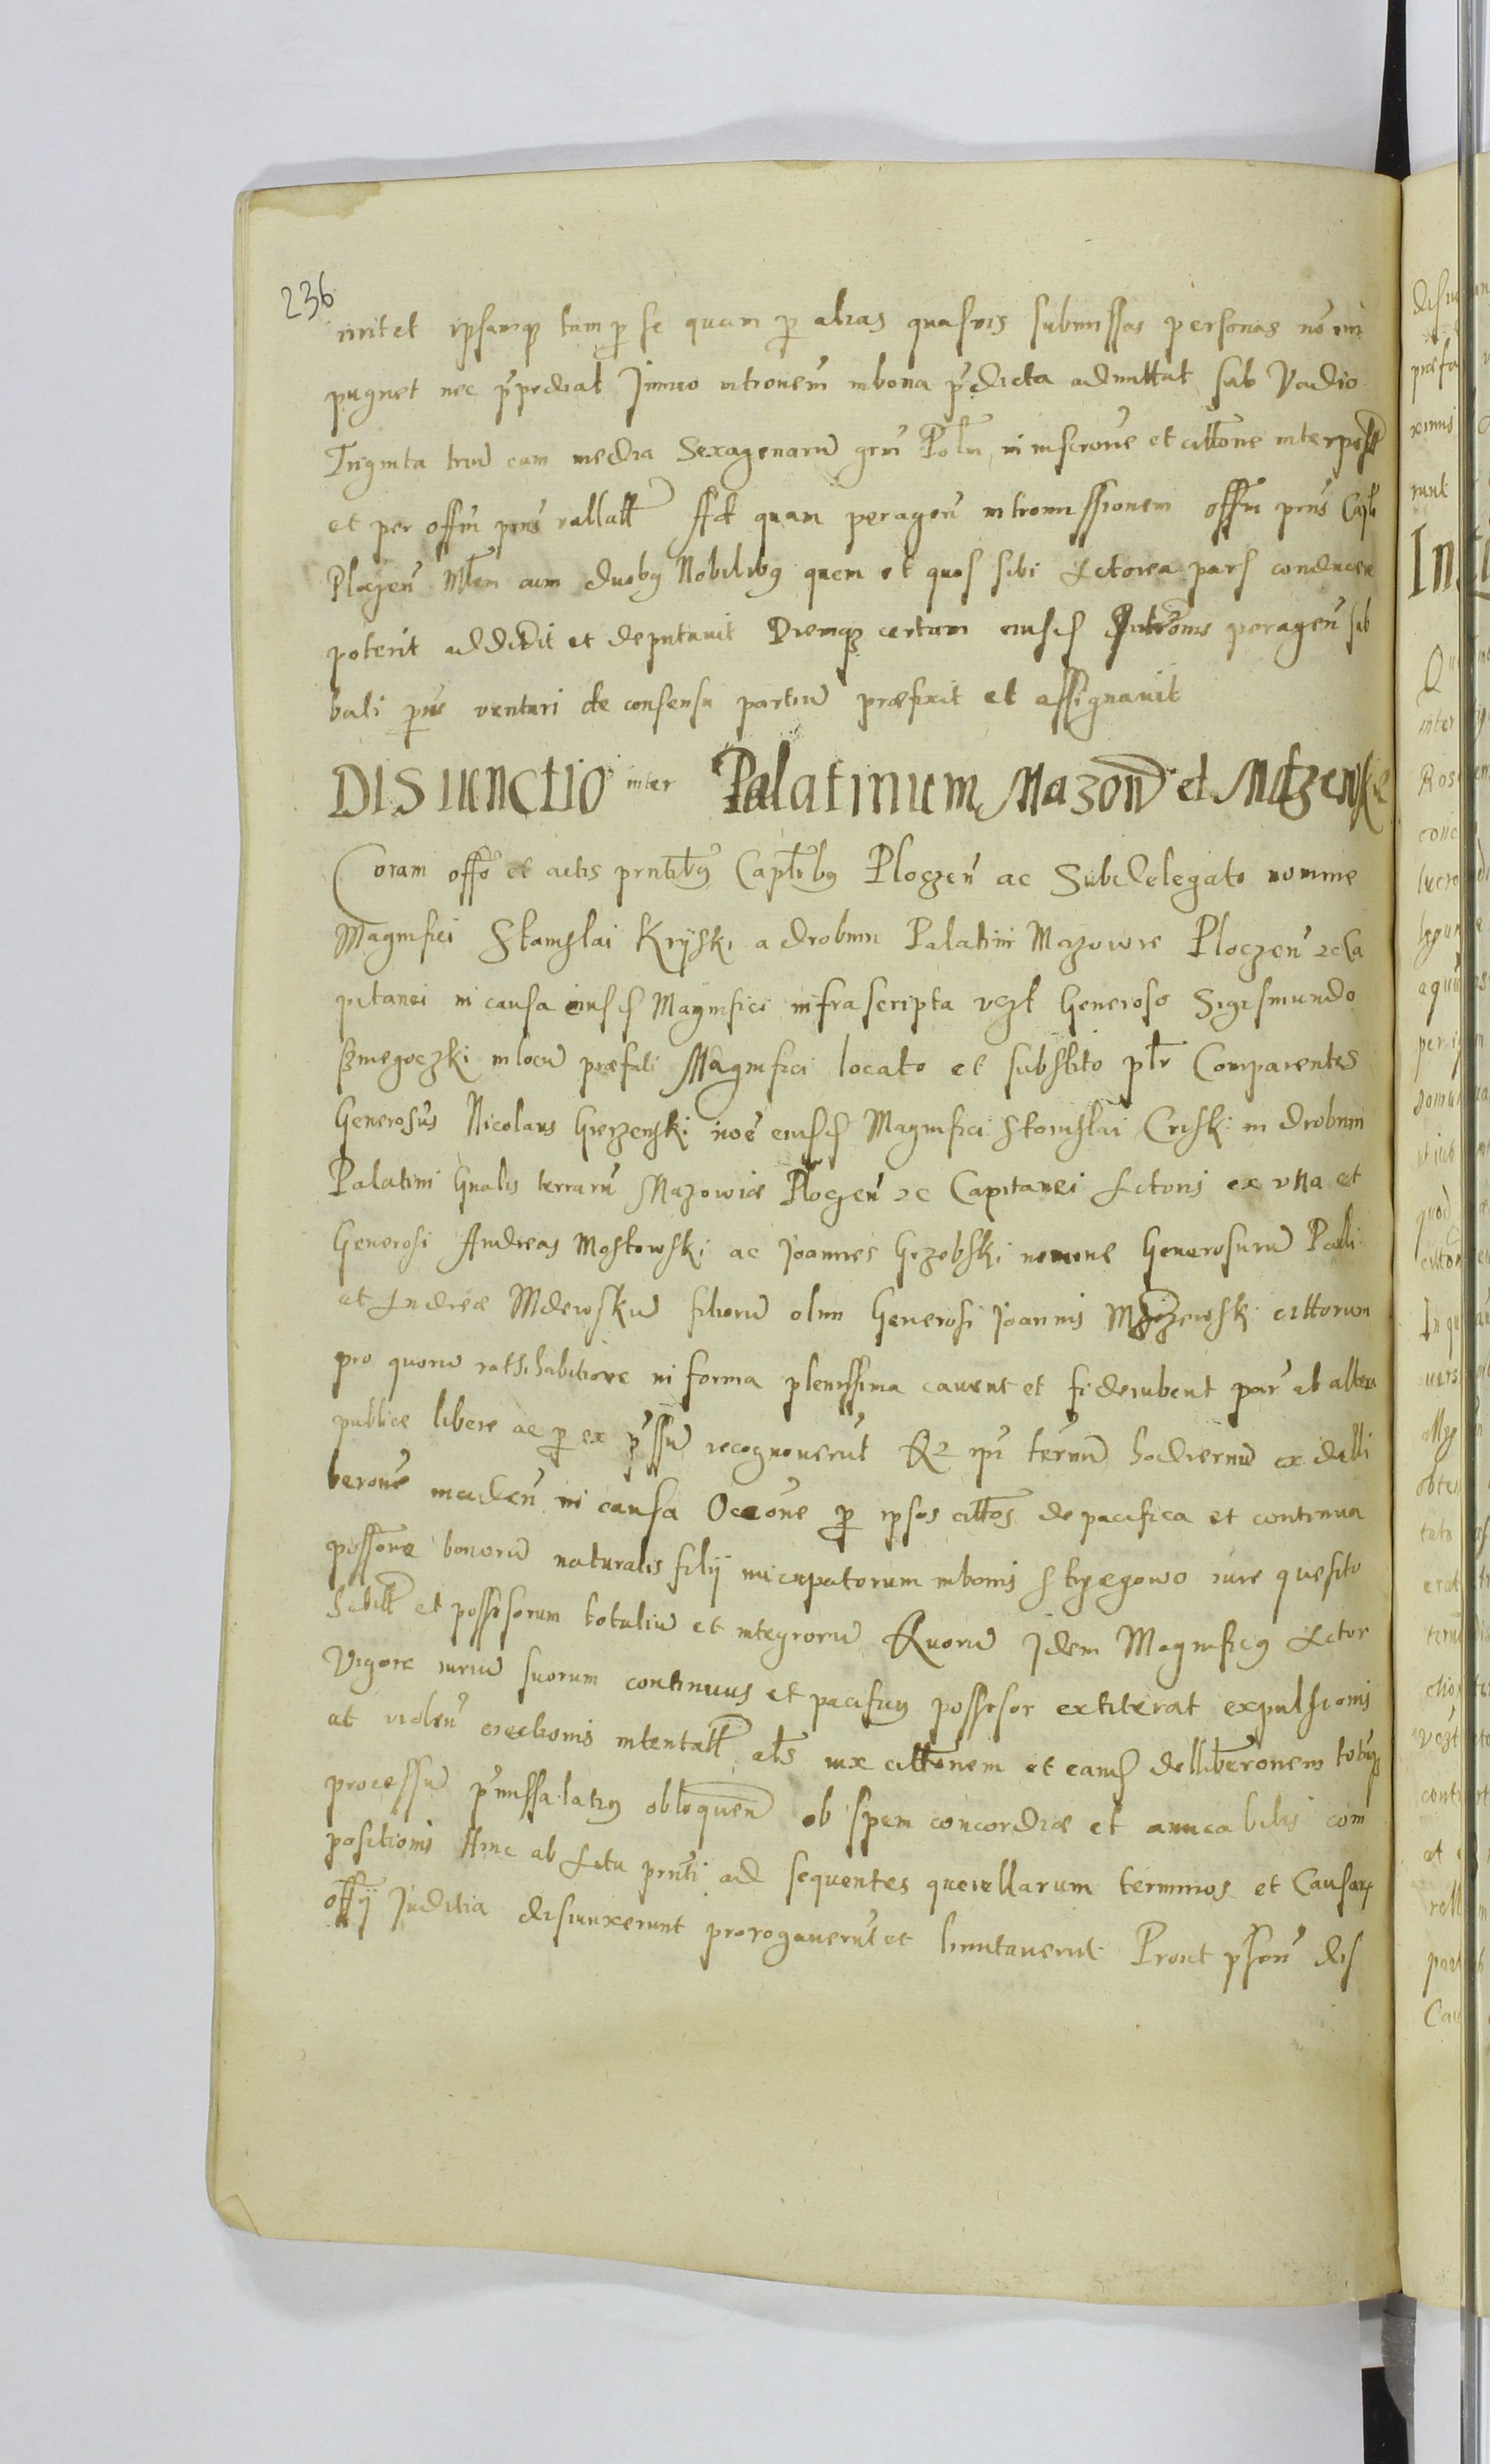 236
mitet ipsamq tam p se quam p alias quasuis submissas personas nō im
pugnet nec p̄pediat Immo intronem̄ in bona p̄dicta admittat sub Vadio
Triginta triū cum media Sexagenarū grū Polū, in inscrōne et cittōne interposit
et per offm̄ prns vallatt Ad quam peragen̄ intromissionem offm̄ prns Capl
Ploczen̄ Mlem cum duobus Nobilibus quem et quos sibi Actorea pars conducere
poterit addidit et deputauit Diemqz certum eiusd Intrōnis peragen̄ sab
bati p̄ns venturi de consensu partiū præfixit et assignauit
DISIUNCTIO inter Palatinum Mazow et Mdzewskie
Coram offo et actis prntibus Capltibus Ploczen̄ ac Subdelegato nomine
Magnifici Stanislai Kryski a drobnin Palatini Mazowie Ploczen̄ 2c Ca
pitanei in causa eiusd Magnifici infrascripta vczt Generoso Sigismundo
Smegoczki in locū præfati Magnifici locato et substito pltr Comparentes
Generosus Nicolaus Gierzenski noē eiusd Magnifici Stanislai Criski in drobnin
Palatini Gnalis terrarū Mazowiæ Ploczen̄ 2c Capitanei Actoris ex vna et
Generosi Andreas Mostowski ac Joannes Grzebski nomine Generosurū Pauli
et Andreæ Mdewskiū filiorū olim Generosi Joannis Mdzewski cittorum
pro quorū rathihabitione in forma plenissima cauent et fideiubent par ab altera
publice libere ac p ex p̄ssū recognouerūt Qz ipī termū hodiernū ex delli
berōne incaden̄ in causa Occōne p ipsos cittos de pacifica et continua
possōne bonorū naturalis filij nuncupatorum in bonis Strzegowo iure quesito
habitt et possesorum totaliū et integrorū Quorū Idem Magnificus Actor
Vigore iuriū suorum continuus et pacificus possesor extiterat expulsionis
at violen̄ eiectionis intentatt als iux cittonem et eamd delliberonem totusqz
processū p̄missa latius obloquen̄ ob spem concordiæ et amicabilis com
positionis Hinc ab Actu prnti ad sequentes querellarum terminos et Causarz
offij Juditia disiunxerunt prorogauerūt et limitauerūt Prout p̄sen̄ dis